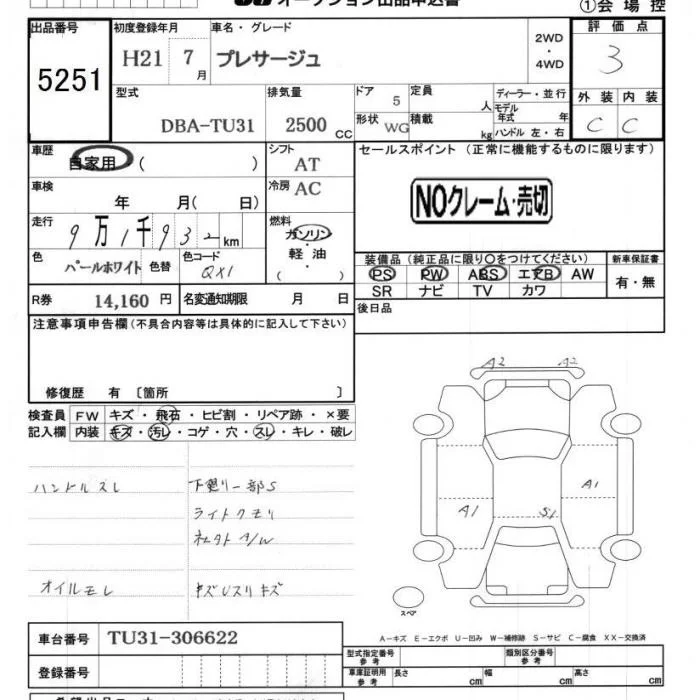 オークション出品申込書
①会場控
出品番号 初度登録年月 車名・グレード 評価点
5251 H21 7月 プレサージュ 2WD・4WD 3
型式 排気量 ドア 定員 ディーラー・並行 外装 内装
DBA-TU31 2500CC 5 人 モデル年式 年 C C
形状 WG 積載 kg ハンドル 左・右
車歴 自家用 ( ) シフト AT セールスポイント (正常に機能するものに限ります)
車検 年 月( 日) 冷房 AC
NOクレーム・売切
走行 9万1千932km 燃料 ガソリン・軽油・( )
色 パールホワイト 色替 色コード QX1
装備品 (純正品に限り○をつけてください) 新車保証書
PS PW ABS エアB AW 有・無
SR ナビ TV カワ
R券 14,160円 名変通知期限 月 日
後日品
注意事項申告欄(不具合内容等は具体的に記入して下さい)
修復歴 有 〔箇所 〕
検査員 FW キズ・飛石・ヒビ割・リペア跡・×要
記入欄 内装 キズ・汚レ・コゲ・穴・スレ・キレ・破レ
A2 A2
ハンドルスレ 下廻り一部S
A1
ライトクモリ
A1 S1
オイルモレ
スペア
A－キズ E－エクボ U－凹み W－補修跡 S－サビ C－腐食 XX－交換済
車台番号 TU31-306622
型式指定番号 参考 類別区分番号 参考
登録番号
車庫証明用 参考 長さ cm 幅 cm 高さ cm